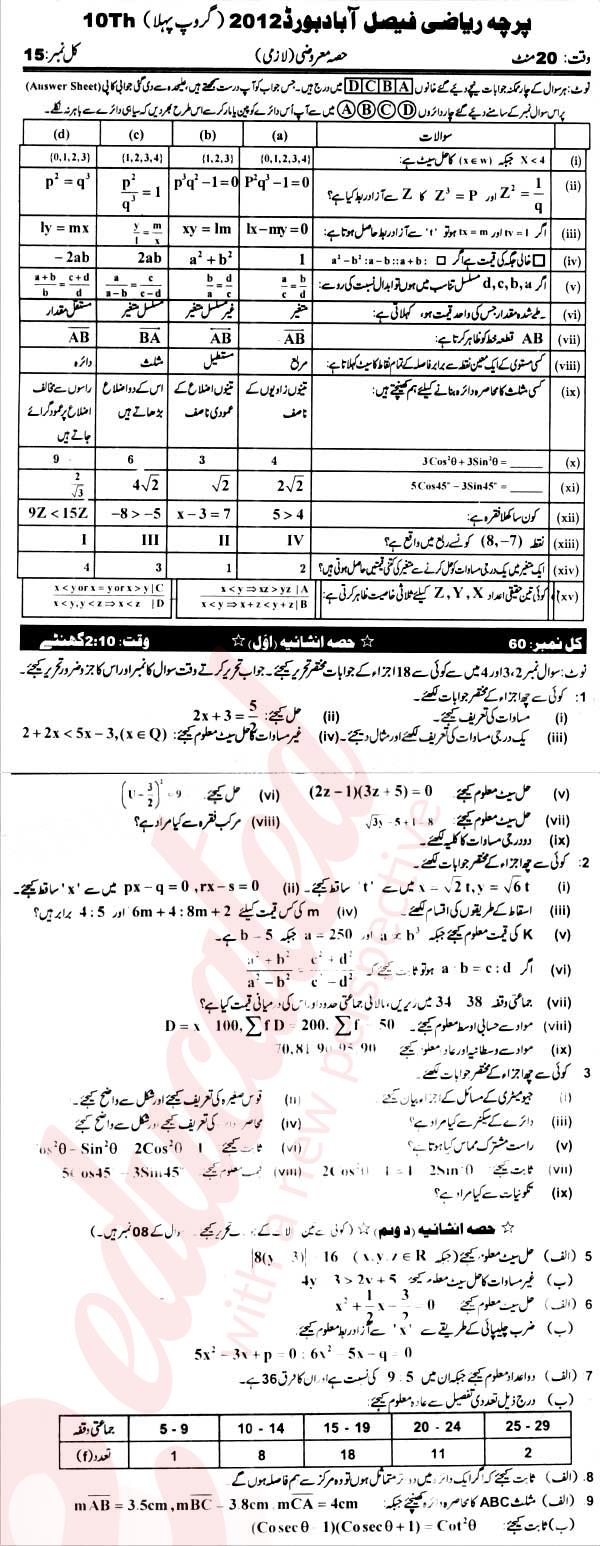 پرچہ ریاضی فیصل آباد بورڈ 2012 (گروپ پہلا) 10Th
وقت: 20 منٹ حصہ معروضی (لازمی) کل نمبر: 15
نوٹ: ہر سوال کے چار ممکنہ جوابات نیچے دیے گئے خانوں D C B A میں درج ہیں۔ جس جواب کو آپ درست سمجھتے ہیں، علیحدہ سے دی گئی جوابی کاپی (Auswer Sheet)
پر اس سوال نمبر کے سامنے دیئے گئے چار دائروں A B C D میں سے آپ اُس دائرے کو پین یا مارکر سے اس طرح بھر دیں کہ سیاہی دائرے سے باہر نہ نکلے۔
سوالات (a) (b) (c) (d)
(i) X < 4 جبکہ (x∈w) کا حل سیٹ ہے: {0,1,2,3,4} {1,2,3} {1,2,3,4} {0,1,2,3}
(ii) Z² = 1/q اور Z³ = P کا Z سے آزاد ربط کیا ہے؟ P²q³ -1=0 p³q² -1=0 p²/q³ = 1 p² = q³
(iii) اگر tx = m اور tv = 1 ہو تو 't' سے آزاد ربط حاصل ہوتا ہے: lx-my=0 xy = lm y/l = m/x ly = mx
(iv) □ خالی جگہ کی قیمت ہے اگر □ : a² - b² : a - b :: a + b 1 a² + b² 2ab - 2ab
(v) اگر d, c, b, a مسلسل تناسب میں ہوں تو ابدال نسبت کی رو سے: a/c = b/d b/a = d/c a/a-b = c/c-d a+b/b = c+d/d
(vi) طے شدہ مقدار جس کی واحد قیمت ہو، کہلاتی ہے: متغیر غیر مسلسل متغیر مسلسل متغیر مستقل مقدار
(vii) AB قطعہ خط کو ظاہر کرتا ہے: AB AB BA AB
(viii) کسی مستوی کے ایک معین نقطہ سے برابر فاصلہ کے تمام نقاط کا سیٹ کہلاتا ہے: مربع مستطیل مثلث دائرہ
(ix) کسی مثلث کا محاصرہ دائرہ بنانے کیلئے ہم کھینچتے ہیں: تینوں زاویوں کے ناصف تینوں اضلاع کے عمودی ناصف اس کے دو اضلاع بڑھاتے ہیں راسوں سے مخالف اضلاع پر عمود گرائے جاتے ہیں
(x) 3Cos²θ + 3Sin²θ = ______ 4 3 6 9
(xi) 5Cos45° - 3Sin45° = ______ 2√2 √2 4√2 2/√3
(xii) کون سا کھلا فقرہ ہے: 5 > 4 x - 3 = 7 -8 > -5 9Z < 15Z
(xiii) نقطہ (8,-7) کونسے ربع میں واقع ہے؟ IV II III I
(xiv) ایک متغیر میں یک درجی مساوات کو حل کرنے سے متغیر کی کتنی قیمتیں حاصل ہوتی ہیں؟ 2 1 3 4
(xv) کوئی تین حقیقی اعداد Z, Y, X کیلئے ثلاثی خاصیت ظاہر کرتی ہے: x < y ⇒ xz > yz | A x < y ⇒ x+z < y+z | B x < y or x = y or x > y | C x < y, y < z ⇒ x < z | D
کل نمبر: 60 ☆ حصہ انشائیہ (اوّل) ☆ وقت: 2:10 گھنٹے
نوٹ: سوال نمبر 2، 3 اور 4 میں سے کوئی سے 18 اجزاء کے جوابات مختصر تحریر کیجئے۔ جواب تحریر کرتے وقت سوال کا نمبر اور اس کا جزو ضرور تحریر کیجئے۔
1: کوئی سے چھ اجزاء کے مختصر جوابات لکھئے۔
(i) مساوات کی تعریف کیجئے۔ (ii) حل کیجئے: 2x + 3 = 5/
(iii) یک درجی مساوات کی تعریف لکھئے اور مثال دیجئے۔ (iv) غیر مساوات کا حل سیٹ معلوم کیجئے: 2 + 2x < 5x - 3, (x∈Q)
(v) حل سیٹ معلوم کیجئے (2z - 1)(3z + 5) = 0 (vi) حل کیجئے (U - 3/2)² = 9
(vii) حل سیٹ معلوم کیجئے √3y - 5 + 1 = 8 (viii) مرکب فقرہ سے کیا مراد ہے؟
(ix) دو درجی مساوات کا کلیہ لکھئے۔
2: کوئی سے چھ اجزاء کے مختصر جوابات لکھئے۔
(i) x = √2 t, y = √6 t میں سے 't' ساقط کیجئے۔ (ii) px - q = 0, rx - s = 0 میں سے 'x' ساقط کیجئے۔
(iii) اسقاط کے طریقوں کی اقسام لکھئے۔ (iv) m کی کس قیمت کیلئے 6m + 4 : 8m + 2 اور 4 : 5 برابر ہیں؟
(v) K کی قیمت معلوم کیجئے جبکہ a ∝ b³ اور a = 250 جبکہ b = 5 ہے۔
(vi) اگر a : b = c : d ہو تو ثابت کیجئے کہ a² + b²/a² - b² = c² + d²/c² - d²
(vii) جماعتی وقفہ 34 38 میں زیریں، بالائی جماعتی حدود اور اس کی درمیانی قیمت کیا ہے؟
(viii) مواد سے حسابی اوسط معلوم کیجئے۔ D = x 100, ∑fD = 200, ∑f = 50
(ix) مواد سے وسطانیہ اور عادہ معلوم کیجئے۔ 70,81,90,95,90
3 کوئی سے چھ اجزاء کے مختصر جوابات لکھئے۔
(i) جیومیٹری کے مسائل کے اجزاء بیان کیجئے۔ (ii) قوس صغیرہ کی تعریف کیجئے اور شکل سے واضح کیجئے۔
(iii) دائرے کے سیکٹر سے کیا مراد ہے؟ (iv) محاصر دائرہ کی تعریف کیجئے اور شکل سے واضح کیجئے۔
(v) راست مشترک مماس کیا ہوتا ہے؟ (vi) ثابت کیجئے Cos²θ - Sin²θ 2Cos²θ 1
(vii) ثابت کیجئے 2Cos²θ 1 = 1 2Sin²θ (viii) قیمت معلوم کیجئے 5Cos45° 3Sin45°
(ix) تکونیات سے کیا مراد ہے؟
☆ حصہ انشائیہ (دوئم) ☆ (کوئی سے تین سوالات کے جوابات تحریر کیجئے۔ ہر سوال کے 08 نمبر ہیں۔)
5 (الف) حل سیٹ معلوم کیجئے (جبکہ x, y, z ∈ R) |8(y 3)| 16
(ب) غیر مساوات کا حل سیٹ معلوم کیجئے۔ 4y 3 > 2y + 5
6 (الف) حل سیٹ معلوم کیجئے۔ x² + 1/2 x - 3/2 = 0
(ب) ضرب چلیپائی کے طریقے سے 'x' سے آزاد ربط معلوم کیجئے:
5x² - 3x + p = 0 : 6x² - 5x - q = 0
7 (الف) دو اعداد معلوم کیجئے جبکہ ان میں 5 : 9 کی نسبت ہے اور ان کا فرق 36 ہے۔
(ب) درج ذیل تعددی تفصیل سے عادہ معلوم کیجئے:
جماعتی وقفہ 5 - 9 10 - 14 15 - 19 20 - 24 25 - 29
تعدد (f) 1 8 18 11 2
8. (الف) ثابت کیجئے کہ اگر ایک دائرہ میں دو وتر متماثل ہوں تو وہ مرکز سے ہم فاصلہ ہوں گے۔
9 (الف) مثلث ABC کا محاصرہ دائرہ کھینچئے جبکہ: mAB = 3.5cm, mBC - 3.8cm mCA = 4cm
(ب) ثابت کیجئے: (Cosecθ - 1)(Cosecθ + 1) = Cot²θ
educated
with a new perspective